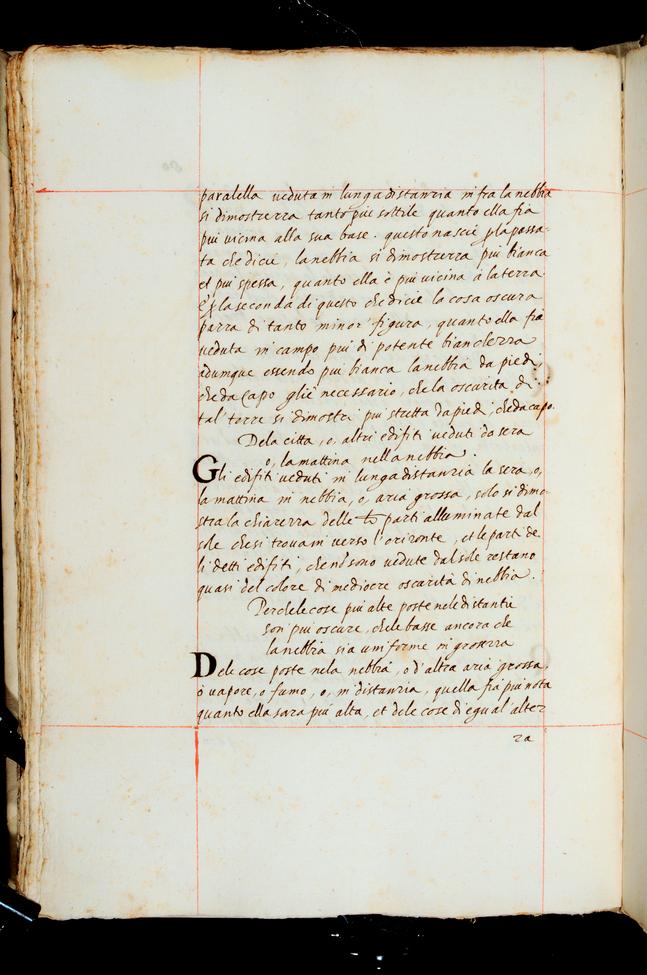 paralella ueduta in lunga distanzia infra la nebbia
si dimosterra tanto piu sottile quanto ella fia
piu uicina alla sua base. questo nascie p la passa-
ta che dicie, la nebbia si dimosterra piu bianca
et piu spessa, quanto ella è piu uicina à la terra
e p la seconda di questo che dicie la cosa oscura
parra di tanto minor' figura, quanto ella fia
ueduta in campo piu di potente bianchezza
adumque essendo piu bianca la nebbia da piedi
che da capo gliè necessario, che la oscurita di
tal' torre si dimostri piu stretta da piedi, che da capo.
Dela citta, o, altri edifiti ueduti da sera
o, la mattina nella nebbia.
Gli edifiti ueduti in lunga distanzia la sera, o,
la mattina in nebbia, o, aria grossa, solo si dimo-
stra la chiarezza delle lo parti alluminate dal
sole che si trova in uerso l'orizonte, et le parti de
li detti edifiti, che nō sono uedute dal sole restano
quasi del colore di mediocre oscurità di nebbia.
Perche le cose piu alte poste nele distantie
son piu oscure, che le basse ancora che
la nebbia sia uniforme in grosezza
Dele cose poste nela nebbia, o d'altra aria grossa,
ò uapore, o fumo, o, in distanzia, quella fia piu nota
quanto ella sara piu alta, et dele cose di equal' altez
za